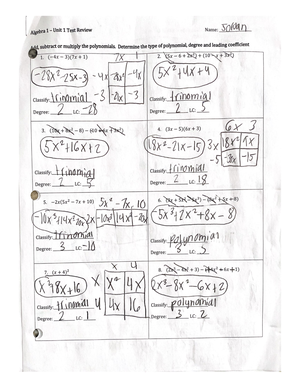 Algebra 1 - Unit 1 Test Review
Name: Jordan
Add, subtract or multiply the polynomials. Determine the type of polynomial, degree and leading coefficient
1. (-4x - 3)(7x + 1)
7x 1
-28x² -25x -3
-4x -28x² -4x
-3 -21x -3
Classify: trinomial
Degree: 2 LC: -28
5x² + 4x + 4
Classify: trinomial
Degree: 2 LC: 5
5x² + 16x + 2
Classify: trinomial
Degree: 2 LC: 5
4. (3x - 5)(6x + 3)
6x 3
18x² - 21x - 15
3x 18x²
-5 -15
Classify: trinomial
Degree: 2 LC: 18
5. -2x(5x² - 7x + 10)
5x² - 7x, 10
Classify: trinomial
Degree: 3 LC: -10
5x³ + 2x² + 8x - 8
Classify: polynomial
Degree: 3 LC: 5
7. (x + 4)²
x 4
x² + 8x + 16
x x² 4x
4 4x 16
Classify: trinomial
Degree: 2 LC: 1
2x³ - 8x² - 6x + 2
Classify: polynomial
Degree: 3 LC: 2